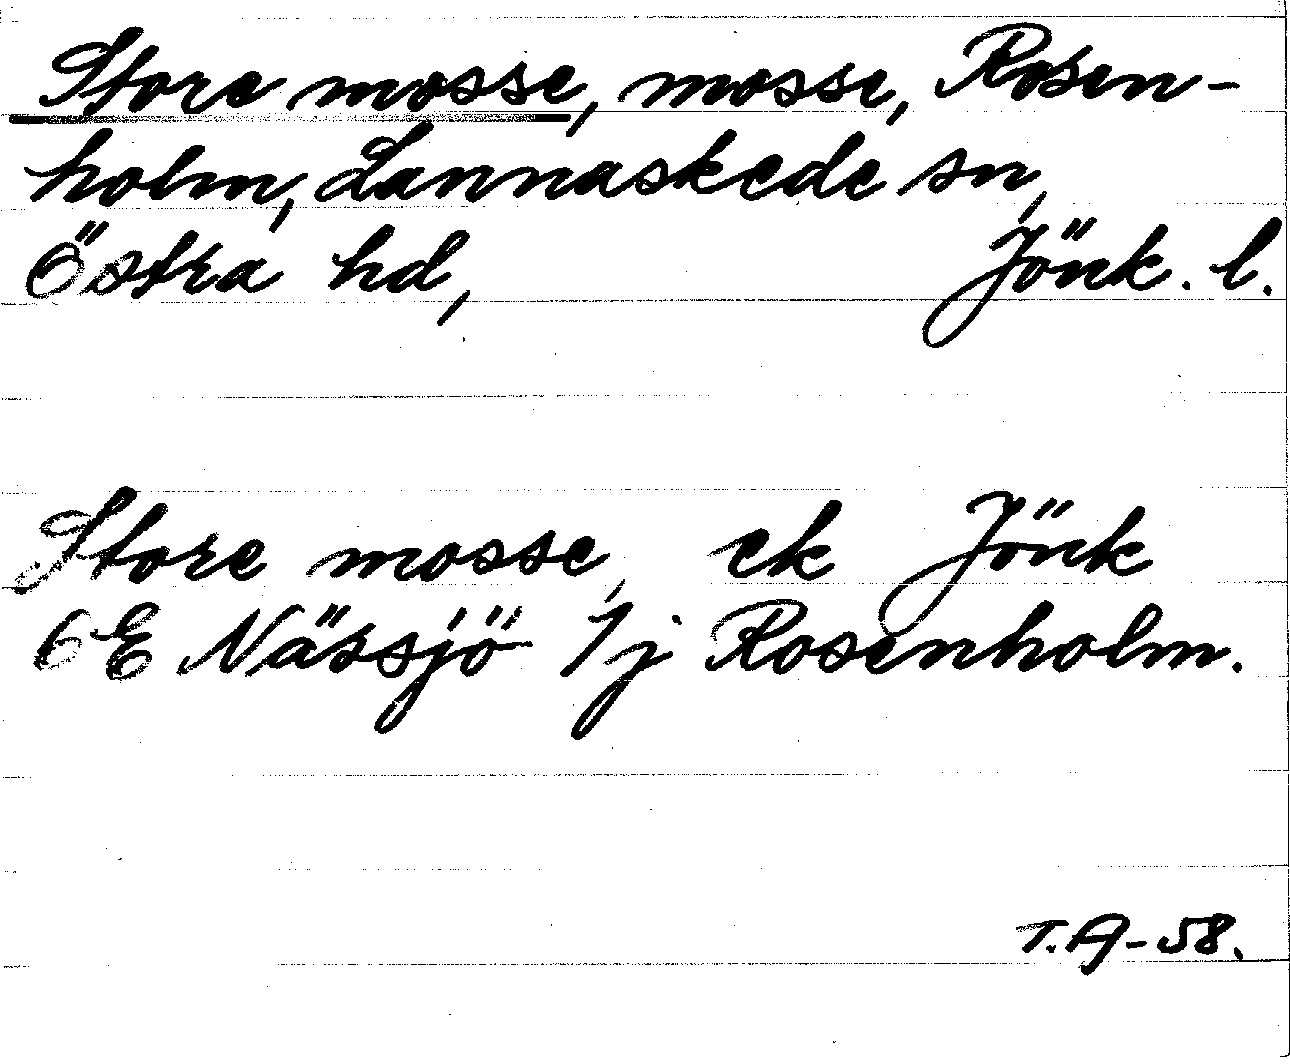 Store mosse, mosse, Rosen-
holm, Lannaskede sn,
Östra hd, Jönk. l.
Store mosse, ek Jönk
6E Nässjö 1j Rosenholm.
T.A-58.